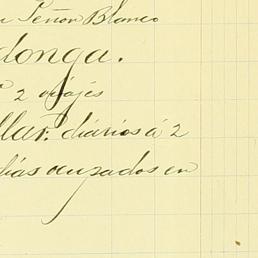 Señor Blanco
donga.
2 viajes
llar. diários á 2
dias ocupados en